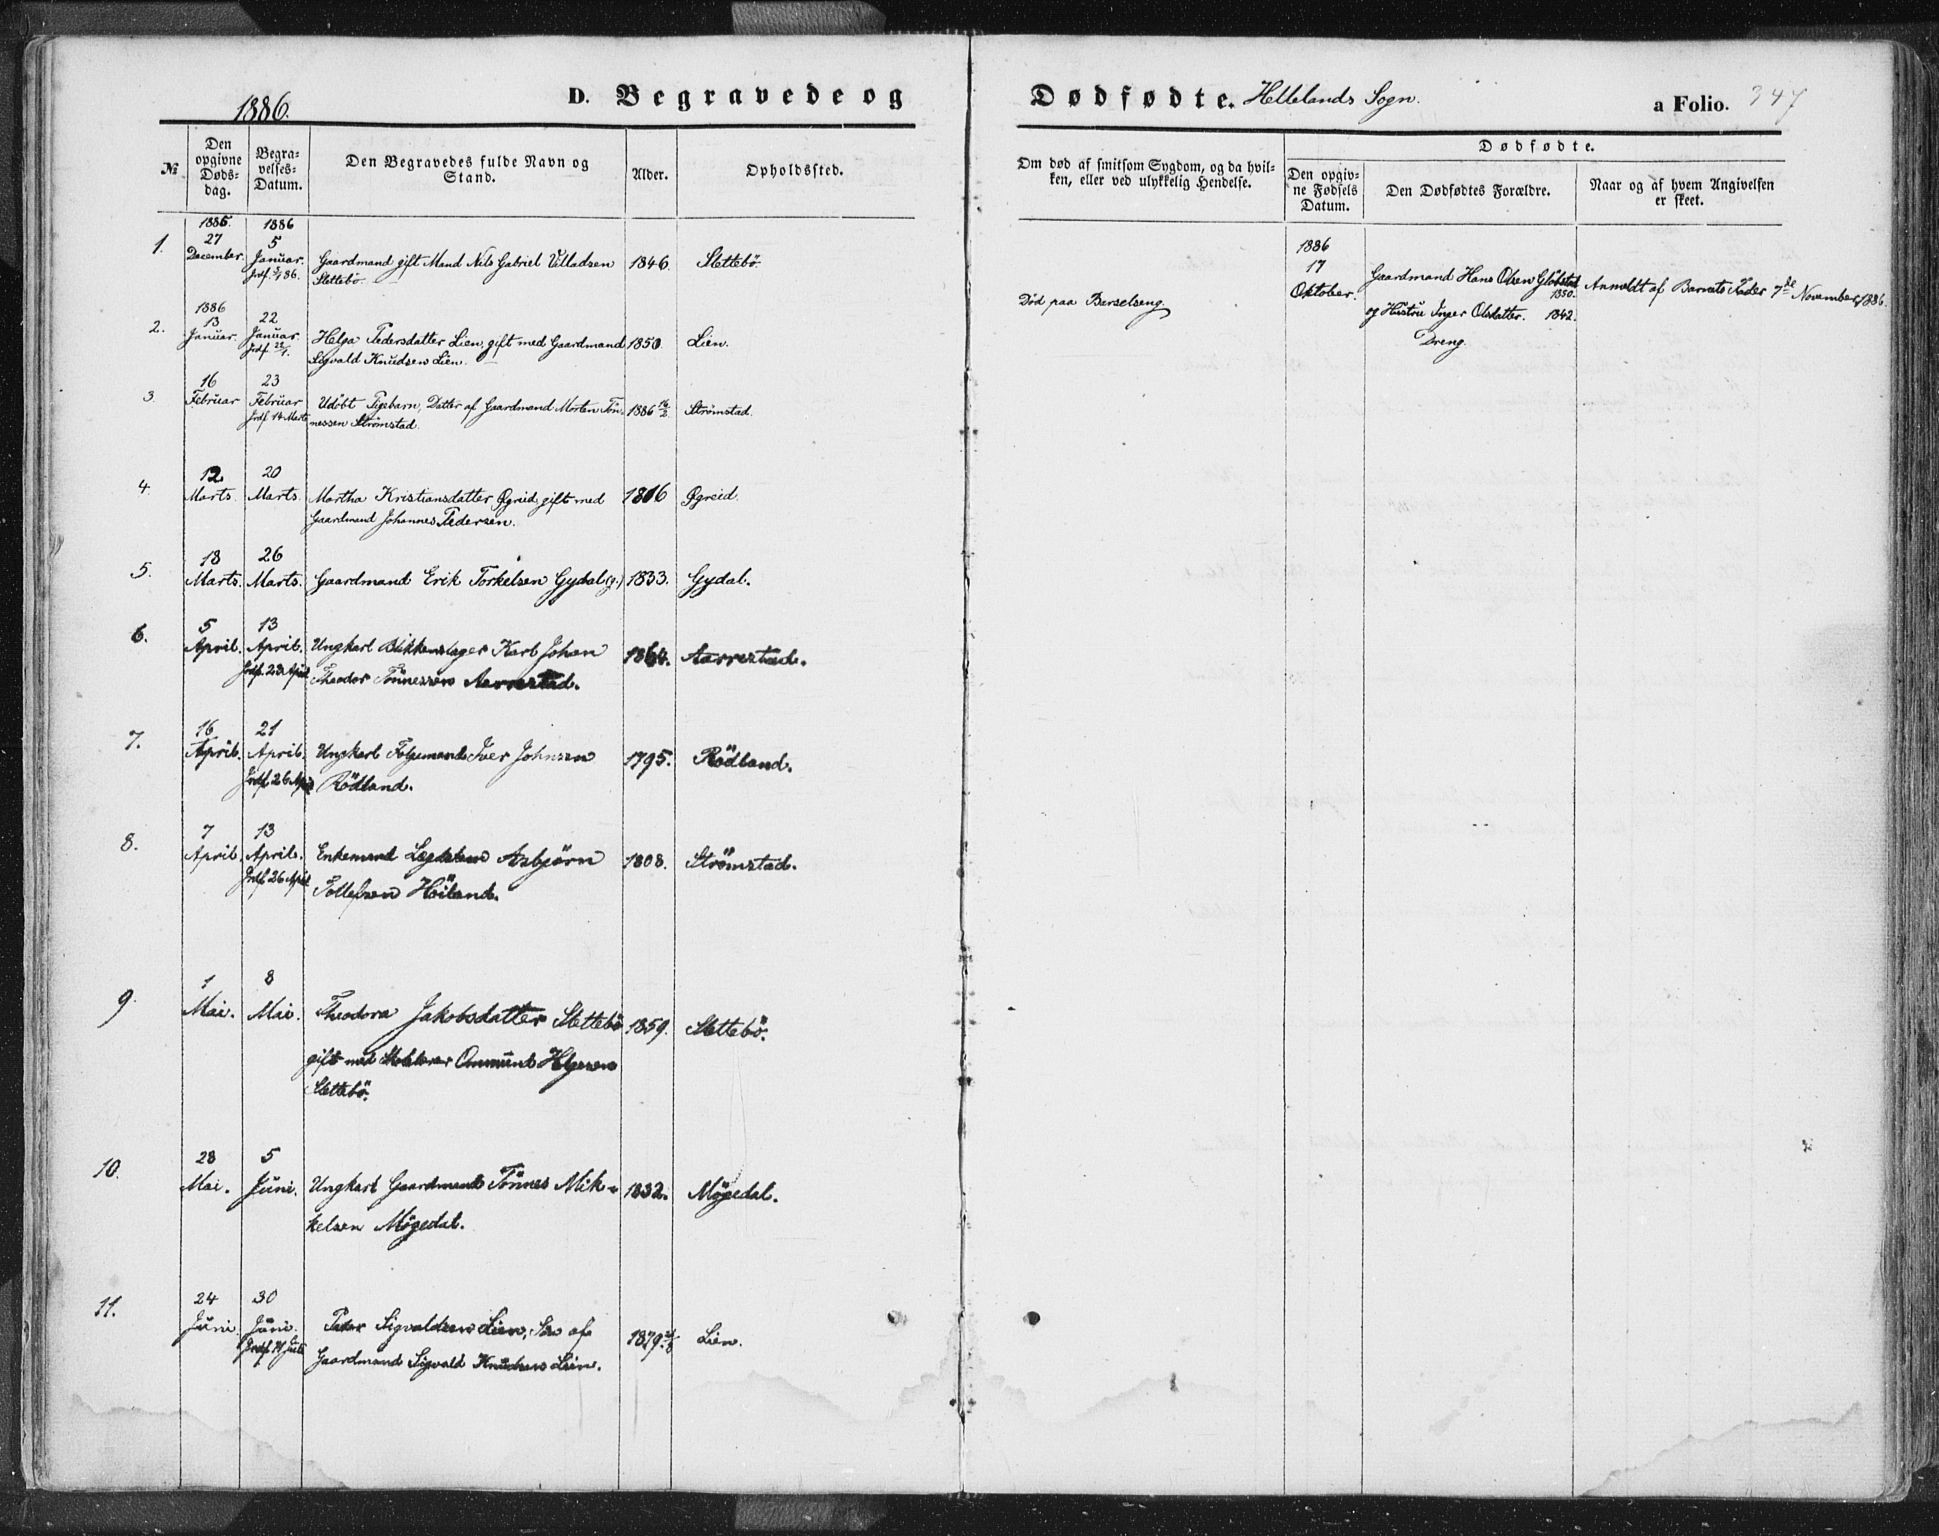 1886.
D. Begravede og
Dødfødte. Hellelands Sogn.
a Folio. 347
№
Den opgivne Døds-dag.
Begra-velses-Datum.
Den Begravedes fulde Navn og Stand.
Alder.
Opholdssted.
Om død af smitsom Sygdom, og da hvil-
ken, eller ved ulykkelig Hendelse.
Dødfødte.
Den opgiv-ne Fødsels Datum.
Den Dødfødtes Forældre.
Naar og af hvem Angivelsen er skeet.
1885. 1886
1. 27 December. 5 Januar. Gaardmand gift Mand Nils Gabriel Villadsen 1846. Slettebö.
Jrdf. 5/1 86. Slettebö.
1886
2. 13 Januar. 22 Januar Helga Pedersdatter Lien, gift med Gaardmand 1850. Lien.
Jrdf. 22/1. Sigvald Knudsen Lien.
Død paa Barselseng.
3. 16 Februar 23 Februar Udöbt Pigebarn, Datter af Gaardmand Morten Tön- 1886 16/2 Strömstad.
Jrdf. 14 Marts nessen Strömstad.
4. 12 Marts. 20 Marts. Martha Kristiansdatter Øgreid gift med 1816 Øgreid.
Gaardmand Johannes Pedersen.
5. 18 Marts. 26 Marts. Gaardmand Erik Torkelsen Gydal (g.) 1833. Gydal.
6. 5 April. 13 April. Ungkarl Blikkenslager Karl Johan 1864. Aarrestad.
Jrdf. 23 April Theodor Tönnessen Aarrestad.
7. 16 April. 21 April. Ungkarl Folgemand Iver Johnsen 1795. Rödland.
Jrdf. 26 April Rödland.
8. 7 April. 13 April. Enkemand Lægdslem Asbjörn 1808. Strömstad.
Jrdf. 26 April Tollefsen Höiland.
9. 1 Mai. 8 Mai. Theodora Jakobsdatter Slettebö 1859. Slettebö.
gift med Ommund Helgesen
Slettebö.
10. 28 Mai. 5 Juni. Ungkarl Gaardmand Tönnes Mik- 1832. Mögedal.
kelsen Mögedal.
11. 24 Juni. 30 Juni. Peder Sigvaldsen Lien, Sön af 1879 Lien.
Jrdf. Juli Gaardmand Sigvald Knudsen Lien.
1886
17 Oktober. Gaardmand Hans Olsen Gløbstad 1850. Anmeldt af Barnets Fader 7de November 1886.
og Hustru Inger Olsdatter. 1842.
Dreng.